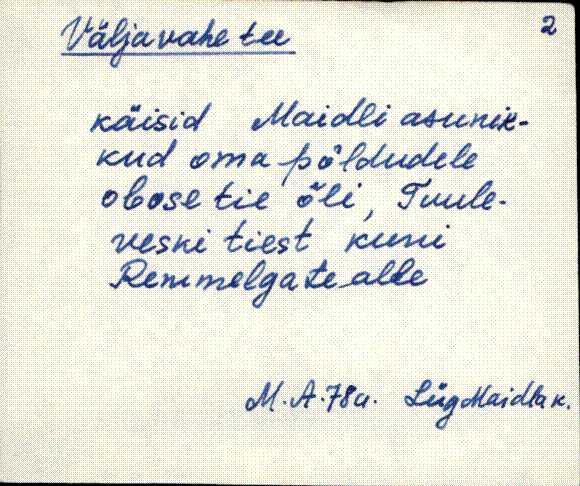 Väljavahe tee
2
käisid Maidli asunik-
kud oma põldudele
obose tie õli, Tuule-
veski tiest kuni
Remmelgate alle
M.A. 78a. Lüg Maidla k.